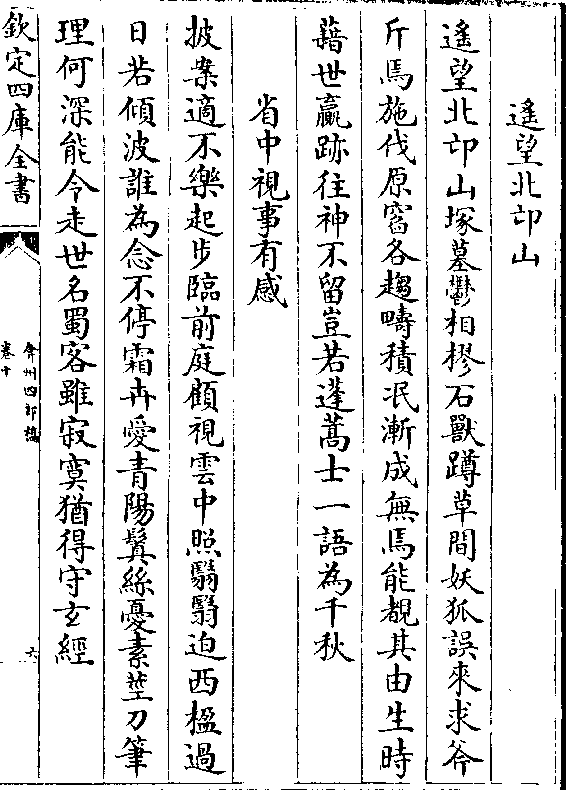 遙望北邙山
遙望北邙山塚墓鬱相樛石獸蹲草間妖狐誤來求斧
斤焉施伐原窅各趨疇積冺漸成無焉能覩其由生時
藉世贏跡往神不留豈若蓬蒿士一語為千秋
省中視事有感
披案適不樂起步臨前庭顧視雲中照翳翳迫西楹過
日若傾波誰為念不停霜卉愛青陽鬒絲憂素莖刀筆
理何深能令走世名蜀客雖寂寞猶得守玄經
欽定四庫全書
弇州四部稿
卷十
六